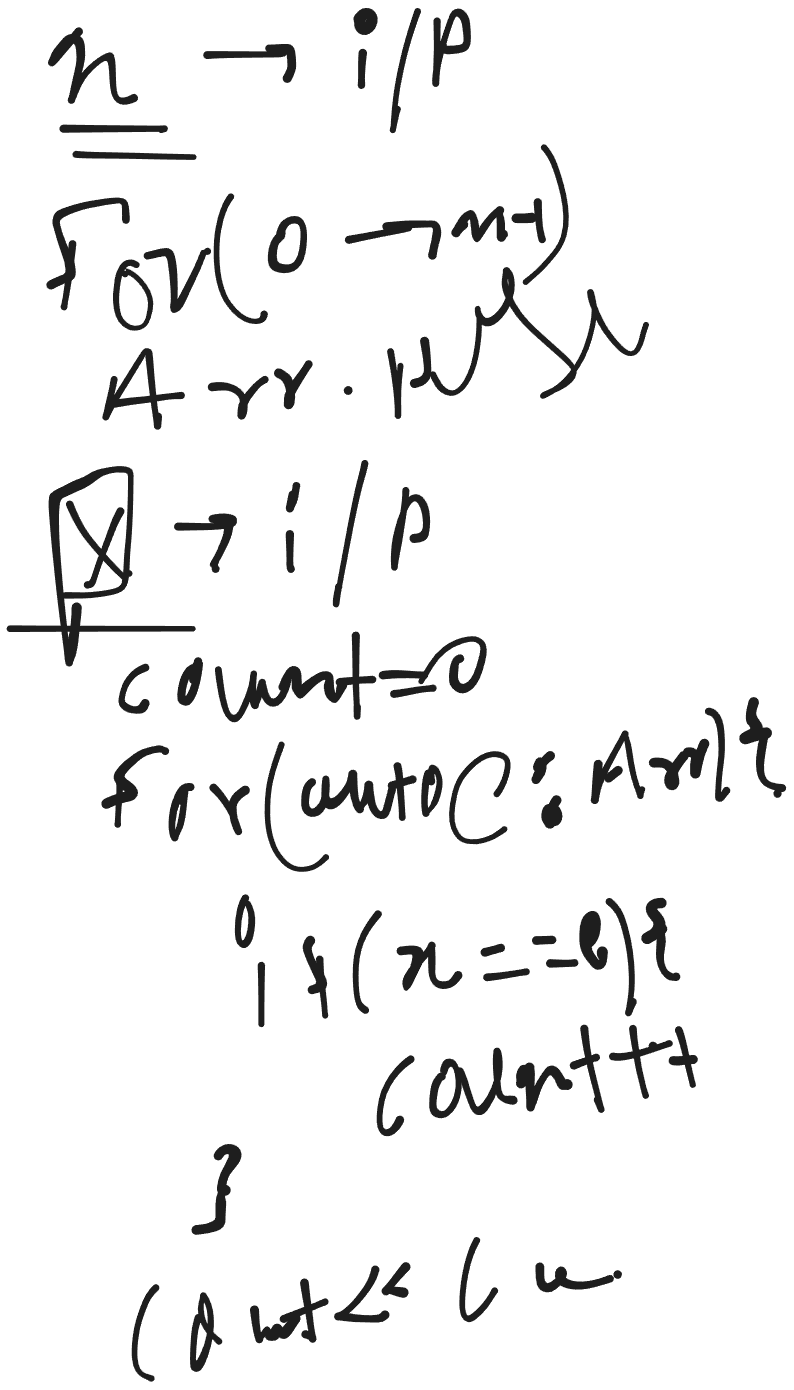 n → i/p
For(0 → n-1)
Arr.push
X → i/p
count=0
For(auto C : Arr){
if(x==e){
count++
}